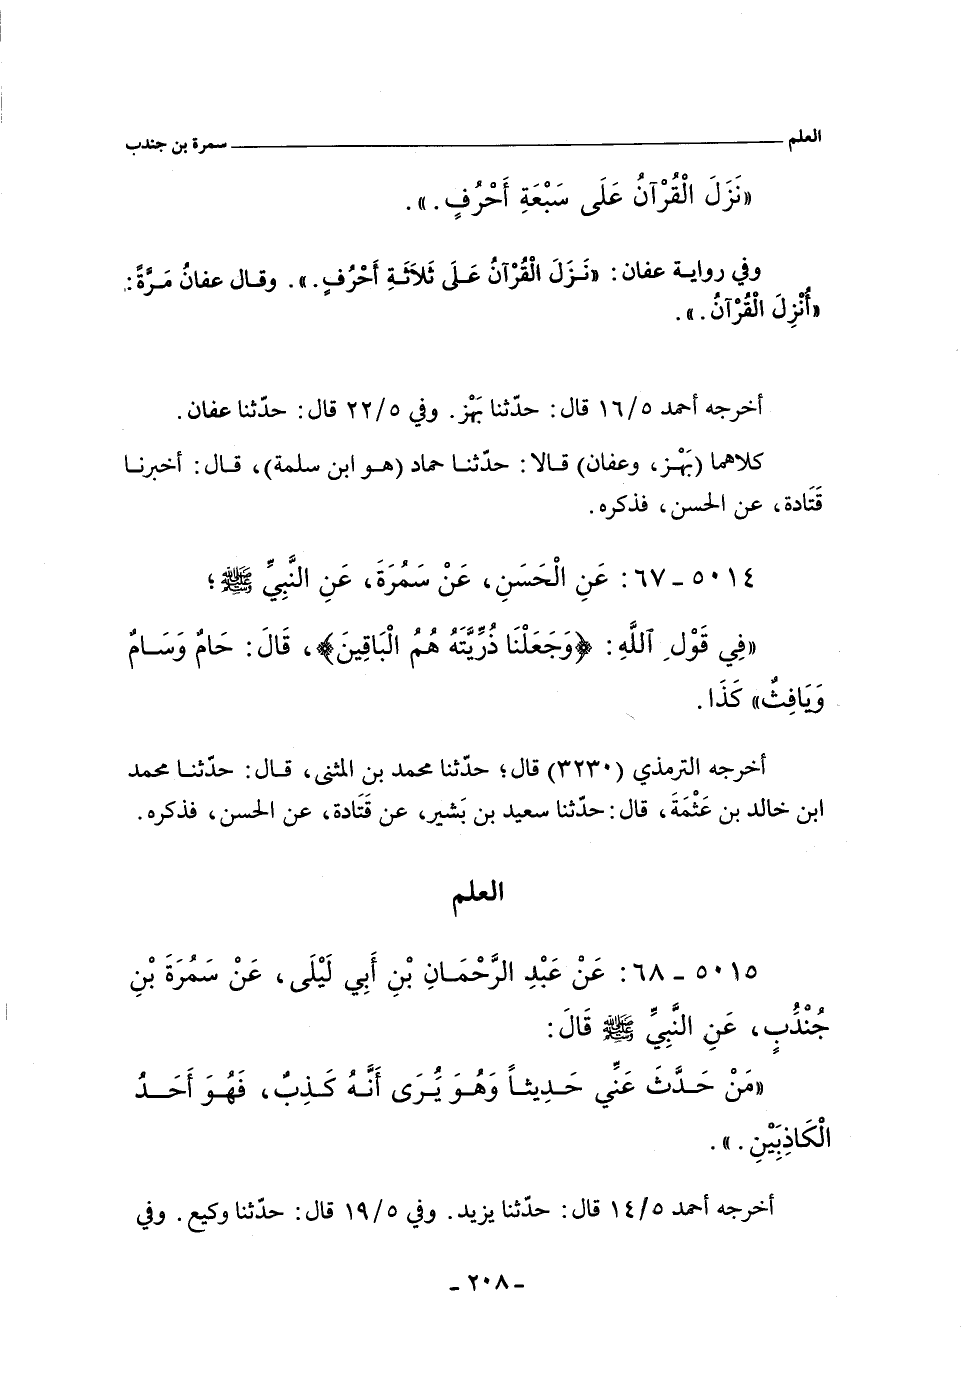 العلم ــــــــــــــــــــ سمرة بن جندب
«نَزَلَ الْقُرْآنُ عَلَى سَبْعَةِ أَحْرُفٍ.».
وفي رواية عفان: «نَزَلَ الْقُرْآنُ عَلَى ثَلاَثَةِ أَحْرُفٍ.». وقال عفانُ مَرَّةً:
«أُنْزِلَ الْقُرْآنُ.».
أخرجه أحمد ١٦/٥ قال: حدّثنا بَهْز. وفي ٢٢/٥ قال: حدّثنا عفان.
كلاهما (بَهْز، وعفان) قالا: حدّثنا حماد (هو ابن سلمة)، قال: أخبرنا
قَتَادة، عن الحسن، فذكره.
٥٠١٤ - ٦٧: عَنِ الْحَسَنِ، عَنْ سَمُرَةَ، عَنِ النَّبِيِّ ﷺ؛
«فِي قَوْلِ ٱللَّهِ: ﴿وَجَعَلْنَا ذُرِّيَّتَهُ هُمُ الْبَاقِينَ﴾، قَالَ: حَامٌ وَسَامٌ
وَيَافِثُ» كَذَا.
أخرجه الترمذي (٣٢٣٠) قال؛ حدّثنا محمد بن المثنى، قال: حدّثنا محمد
ابن خالد بن عَثْمَةَ، قال: حدّثنا سعيد بن بَشير، عن قَتَادة، عن الحسن، فذكره.
العلم
٥٠١٥ - ٦٨: عَنْ عَبْدِ الرَّحْمَانِ بْنِ أَبِي لَيْلَى، عَنْ سَمُرَةَ بْنِ
جُنْدُبٍ، عَنِ النَّبِيِّ ﷺ قَالَ:
«مَنْ حَدَّثَ عَنِّي حَدِيثاً وَهُوَ يُرَى أَنَّهُ كَذِبٌ، فَهُوَ أَحَدُ
الْكَاذِبَيْنِ.».
أخرجه أحمد ١٤/٥ قال: حدّثنا يزيد. وفي ١٩/٥ قال: حدّثنا وكيع. وفي
- ٢٠٨ -